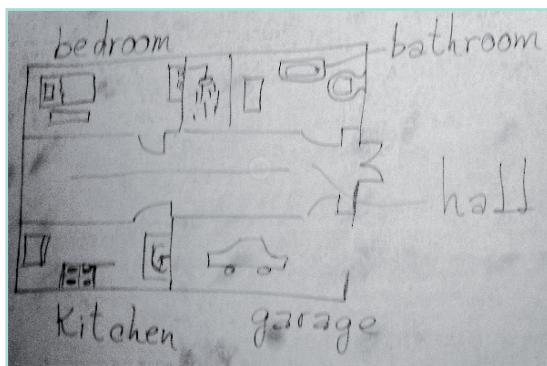 bedroom
bathroom
hall
Kitchen
garage